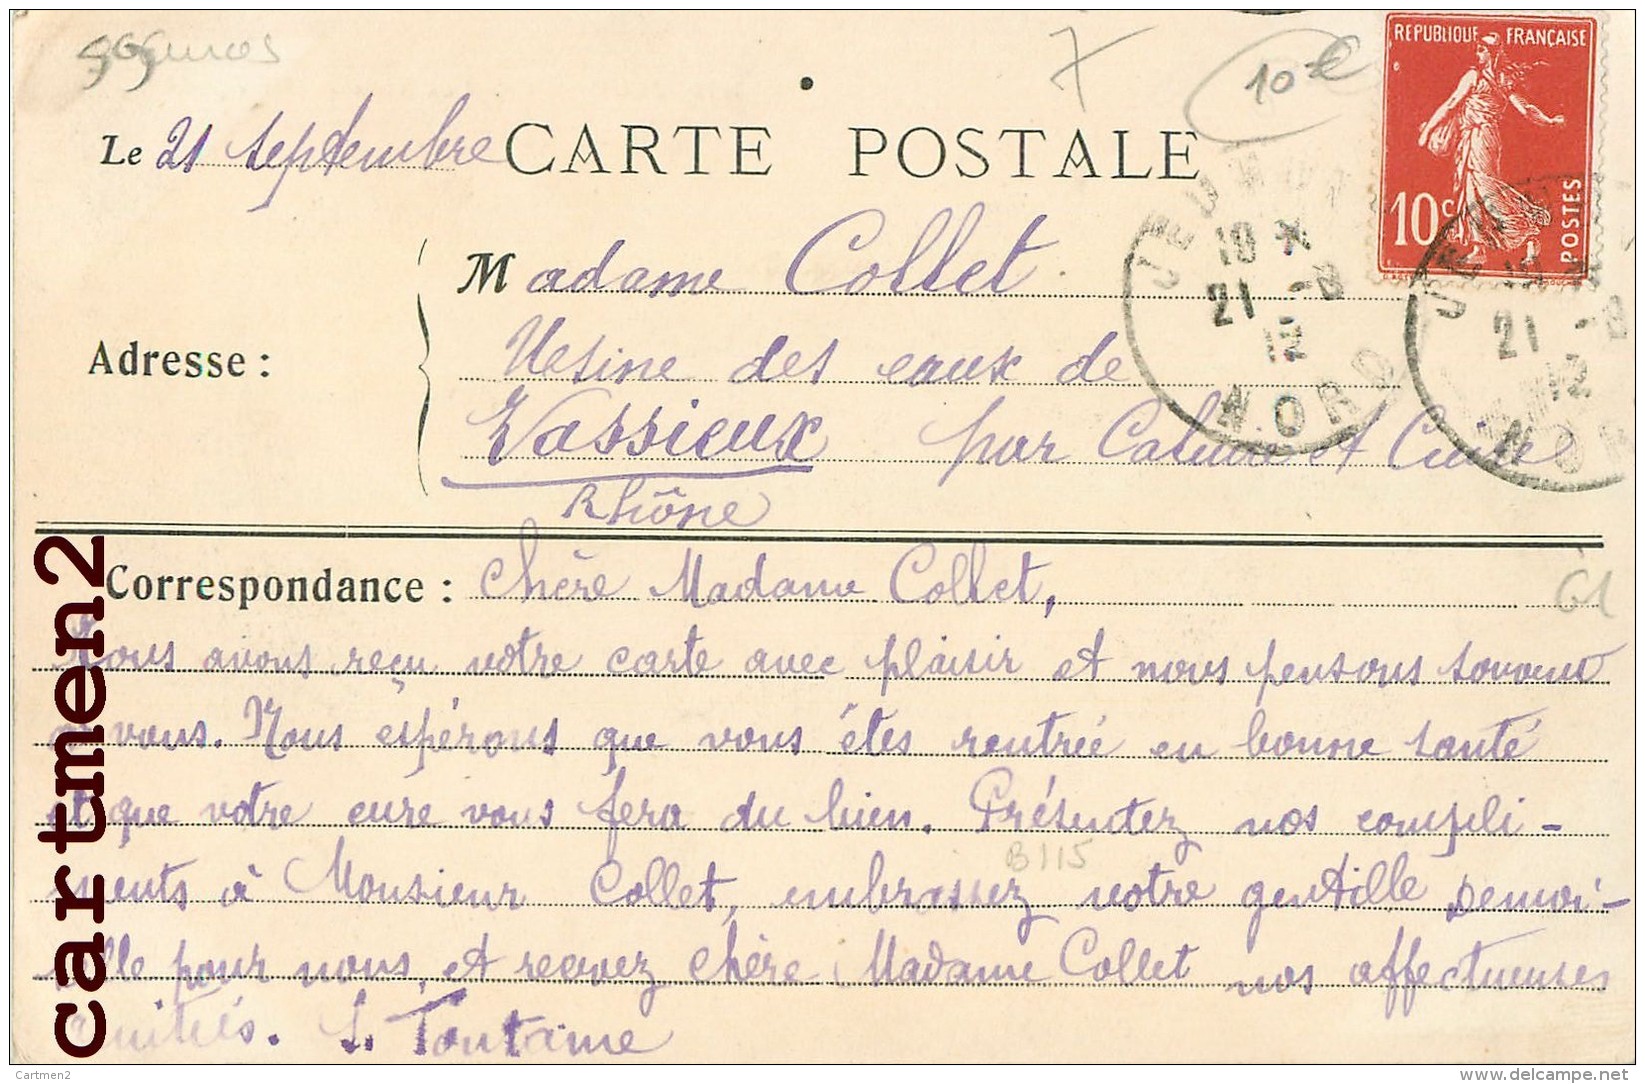 99 euros
7
10 €
REPUBLIQUE FRANÇAISE
10 c
POSTES
Le 21 Septembre CARTE POSTALE
JEUMONT
10 *
21 -9
12
NORD
JEUMONT
10 *
21 -9
12
NORD
Adresse :
Madame Collet.
Uesine des eaux de
Vassieux par Caluire et Cuire
Rhône
Correspondance : Chère Madame Collet,
61
Nous avons reçu votre carte avec plaisir et nous pensons souvent
à vous. Nous espérons que vous êtes rentrée en bonne santé
et que votre cure vous fera du bien. Présentez nos compli-
B115
ments à Monsieur Collet, embrassez votre gentille Demoi-
selle pour nous, et recevez chère Madame Collet nos affectueuses
amitiés. S. Fontaine
cartmen2
Cartmen2
www.delcampe.net